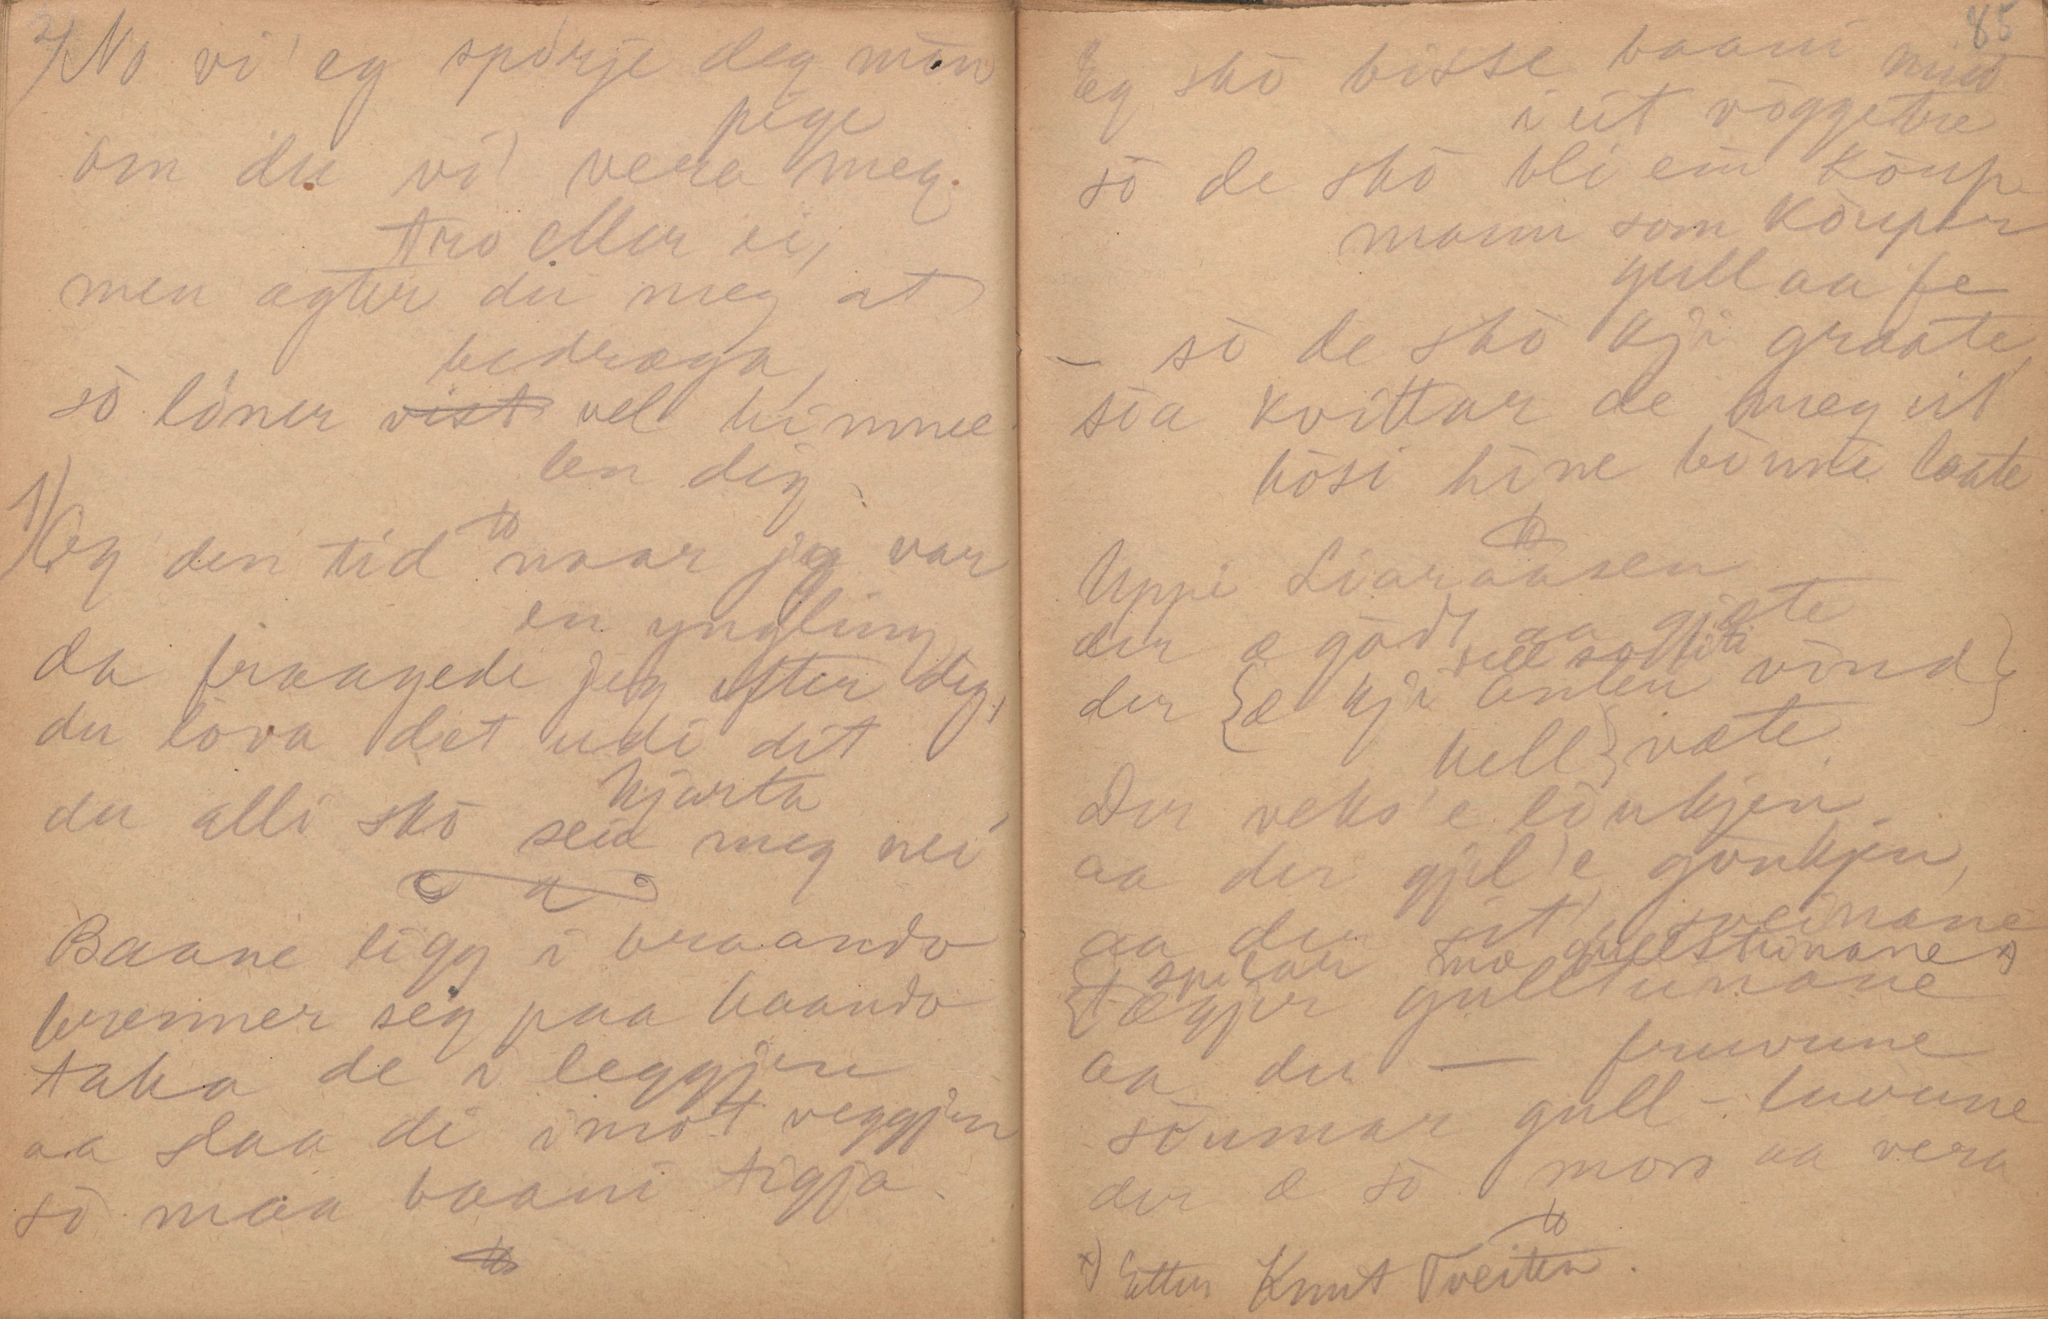 2) No vi' eg spörje deg mön
pige
om du vi' vera meg
tro eller ei,
men agter du meg at
bedraga,
sö löner vist vel himme
len dig.
1) Og den tid naar jeg var
en yngling
da fraagede jeg efter dig,
du lova det udi dit
hjarta
du alli skö seia meg nei
Baane ligg i braando
brenner seg paa haando
taka de i leggjen
aa slaa di imot veggjen
sö maa baani tigja.
85
Eg skö bisse baani mitt
i eit vöggetre
sö de skö bli ein köup
mann som köuper
gull aa fe
– sö de skö kji graate,
söa kvittar de meg ut
hösi hine binne laate
Uppi Liaraasen
der æ godt aa gjæte
sell sollit
der { æ kji anten vind }
hell } væte.
Der veks'e löukjen
aa der gjel'e göukjen,
aa der sit' sveinane
spelar mæ gullsteinane x)
{ tægjer gullteinane
aa der — fruvune
söumar gull-luvune
der æ sö mors aa vera
x) Etter Knut Tveiten.